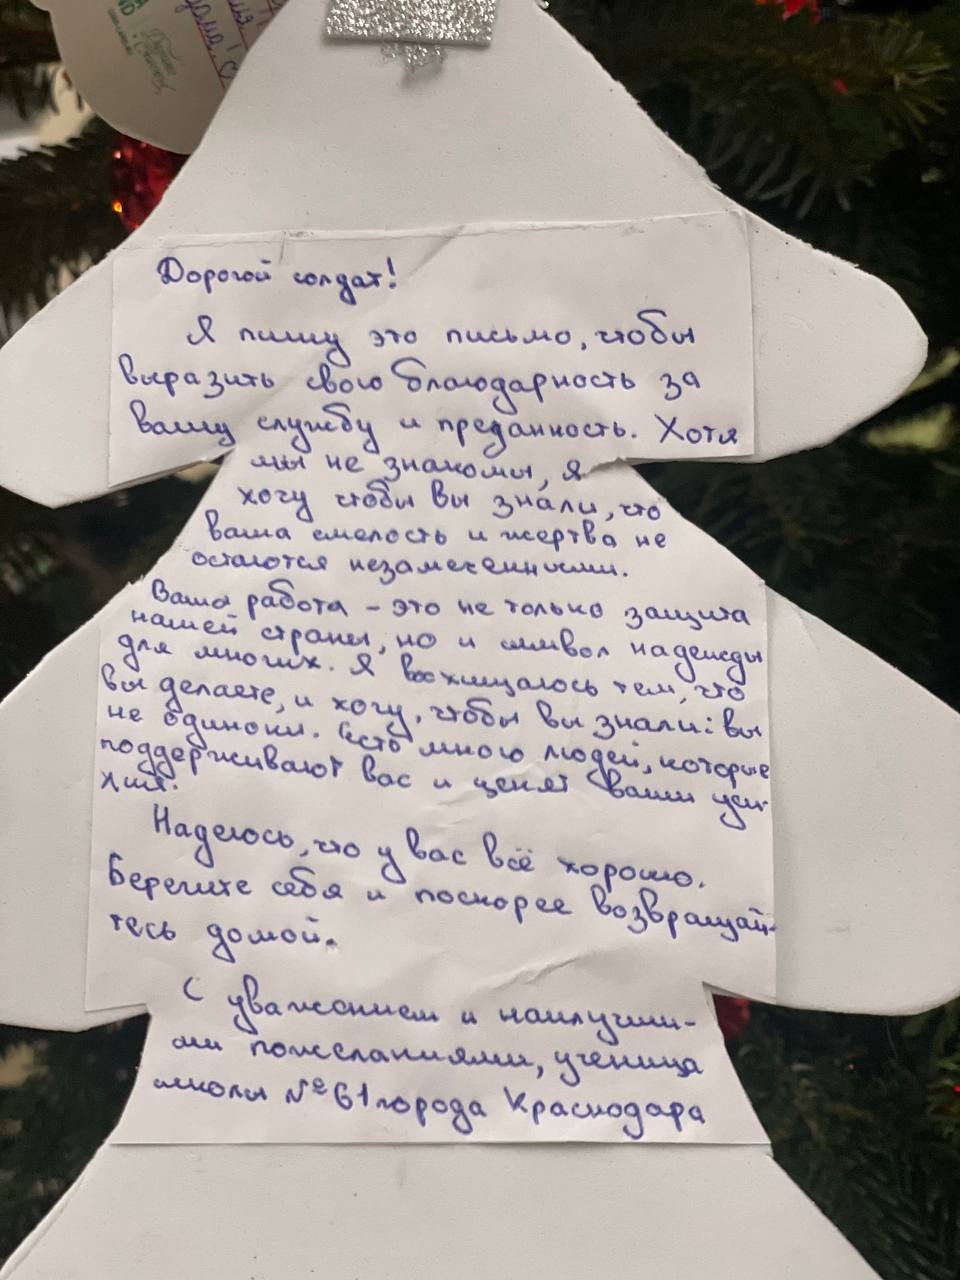 Дорогой солдат!
Я пишу это письмо, чтобы
выразить свою благодарность за
вашу службу и преданность. Хотя
мы не знакомы, я
хочу чтобы вы знали, что
ваша смелость и жертва не
остаются незамеченными.
Ваша работа – это не только защита
нашей страны, но и символ надежды
для многих. Я восхищаюсь тем, что
вы делаете, и хочу, чтобы вы знали: вы
не одиноки. Есть много людей, которые
поддерживают вас и ценят ваши уси-
лия.
Надеюсь, что у вас всё хорошо.
Берегите себя и поскорее возвращай-
тесь домой.
С уважением и наилучши-
ми пожеланиями, ученица
школы №61 города Краснодара